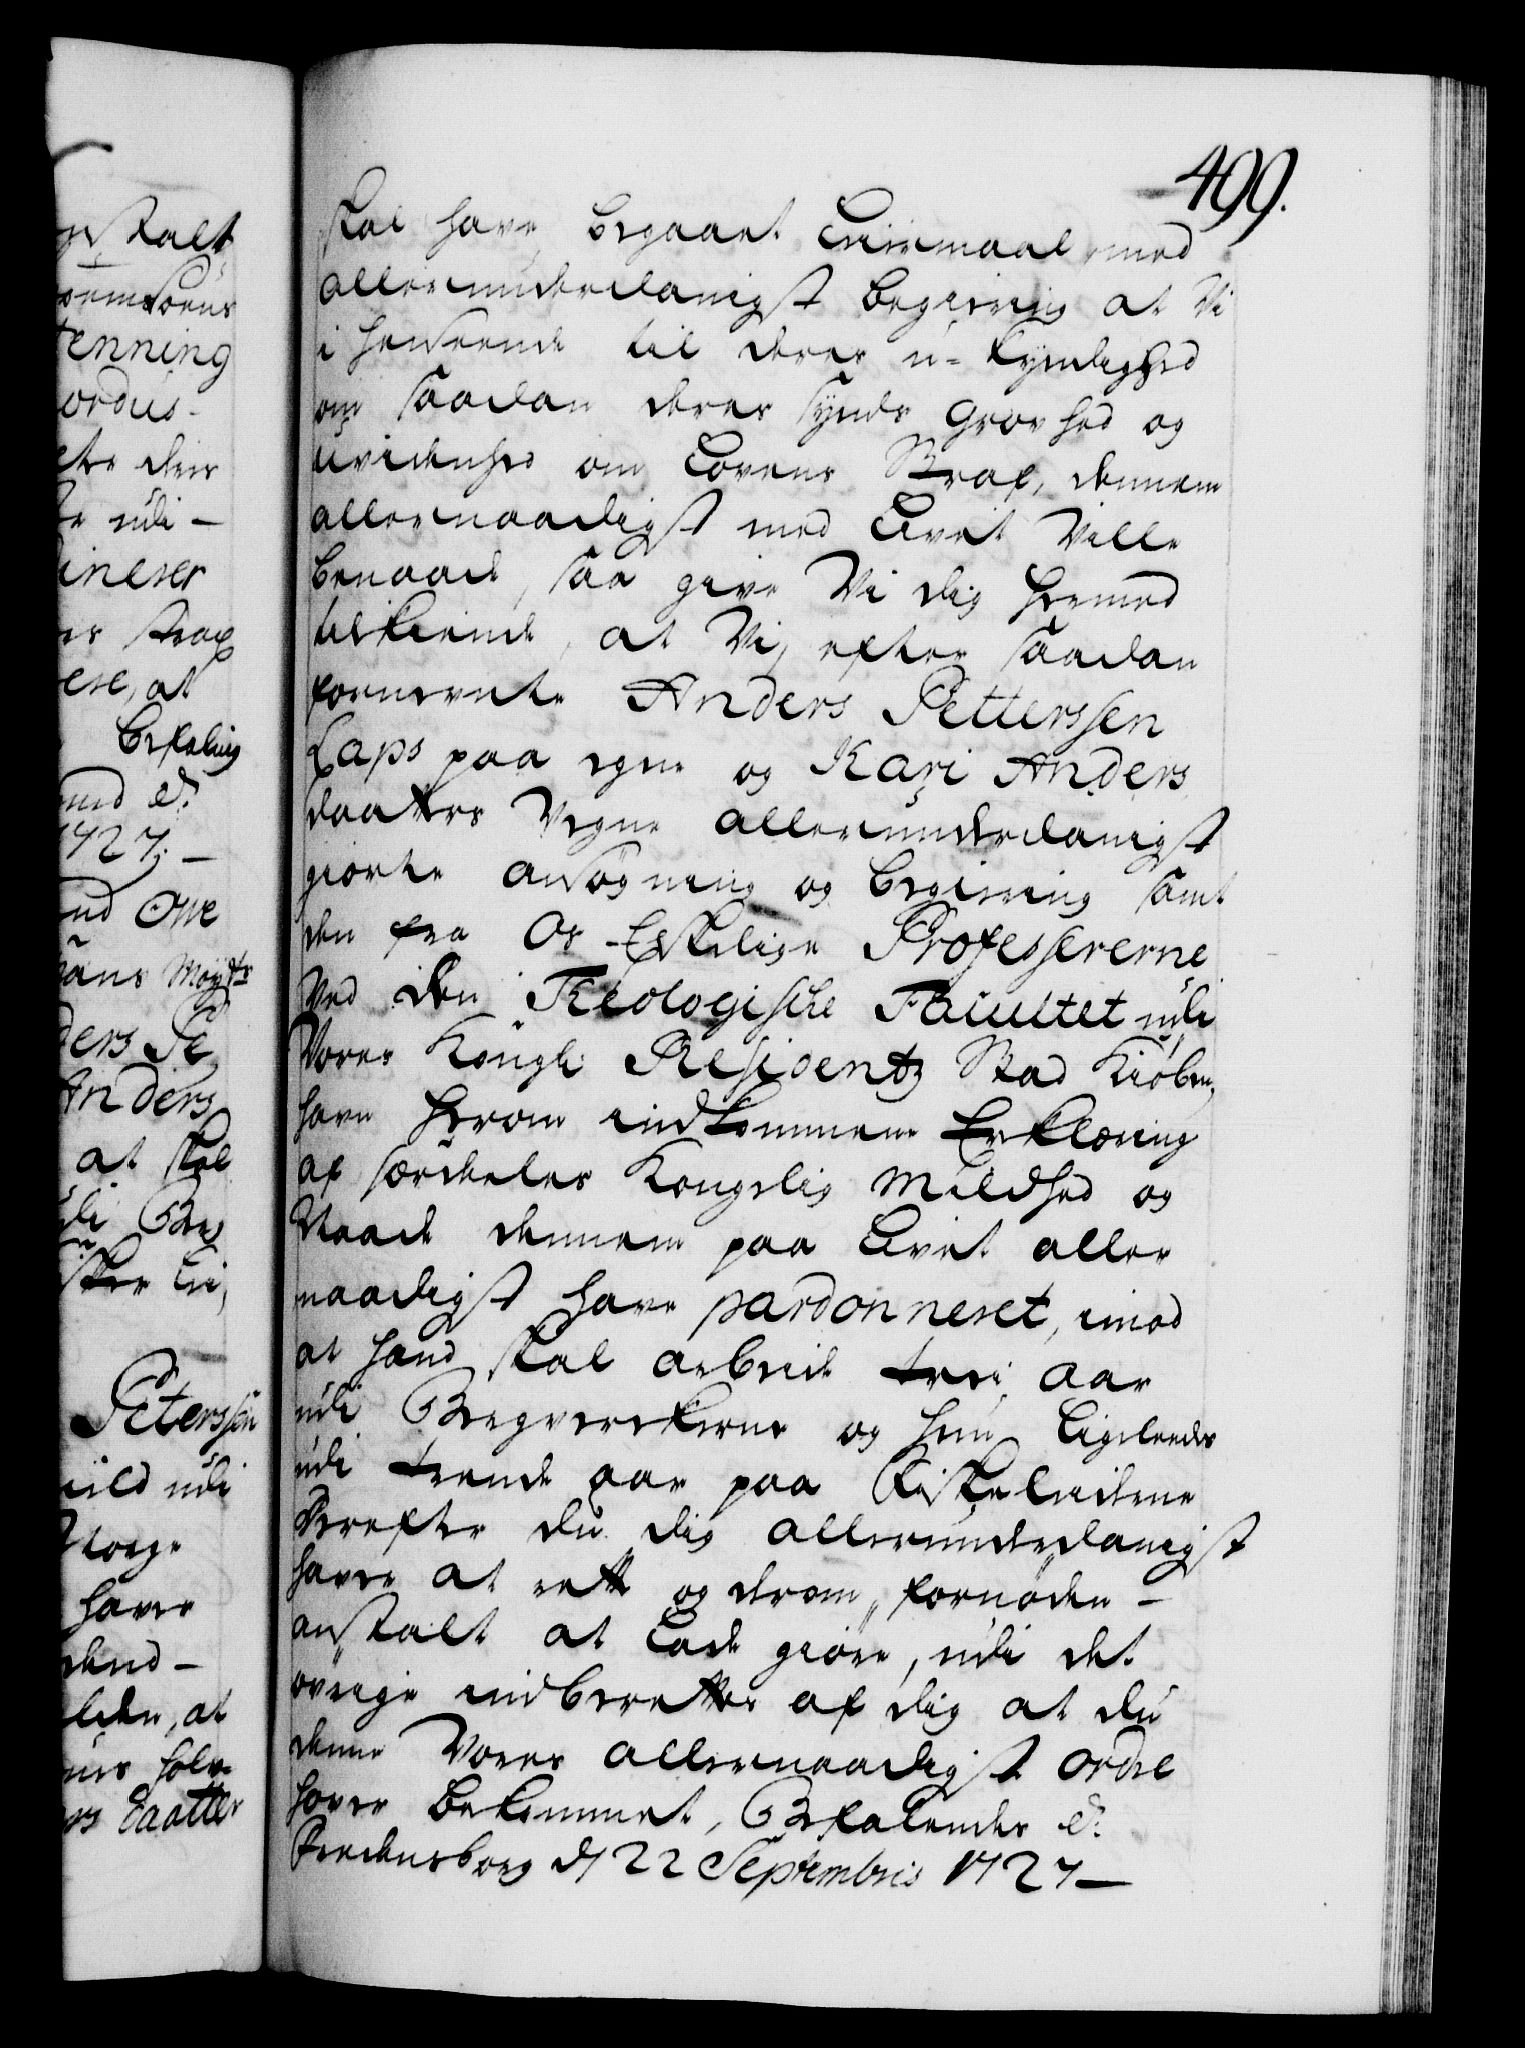 499.
skal have begaaet Leiermaal, med
allerunderdanigst begiering at Vi
i henseende til deres u-kyndighed
om saadan deres Synds Grovhed og
uvidenhed om Lovens Straf, dennem
allernaadigst med Livet Ville
benaade, saa give Vi dig hermed
tilkiende, at Vj efter saadan
fornevnte Anders Petterssen
Laps paa egne og Kari Anders
daatters Vegne allerunderdanigst
giorte ansøgning og begiering samt
den fra Os Elskelige Professererne
Ved den Theologische Facultet udi
Vores Kongl: Residentz Stad Kiøben,
havn herom indkommene Erklæring
af særdeles Kongelig Mildhed og
Naade dennem paa Livet aller
naadigst have pardonneret, imod
at hand skal arbeide trei aar
udi Bergverckerne og hun Ligeleedes
udi trende aar paa Fiskeleiderne
Derefter du dig allerunderdanigst
haver at rette og derom fornøden-
anstalt at Lade giøre, udi det
øvrige indberettes af dig at du
denne Vores allernaadigst ordre
haver bekommet, Befalendes etc:
Fredensborg d/ 22 Septembris 1727-
gestalt
tenning
ordus-
ete deris
te udi -
ineser
es straf
ese, at
Befaling
1727. -
nd Ove
ders Pe
Anders
at skal
udi Berg
Peterssøn
uild udi
Norge
haver
dend -
lden, at
rs Daatter